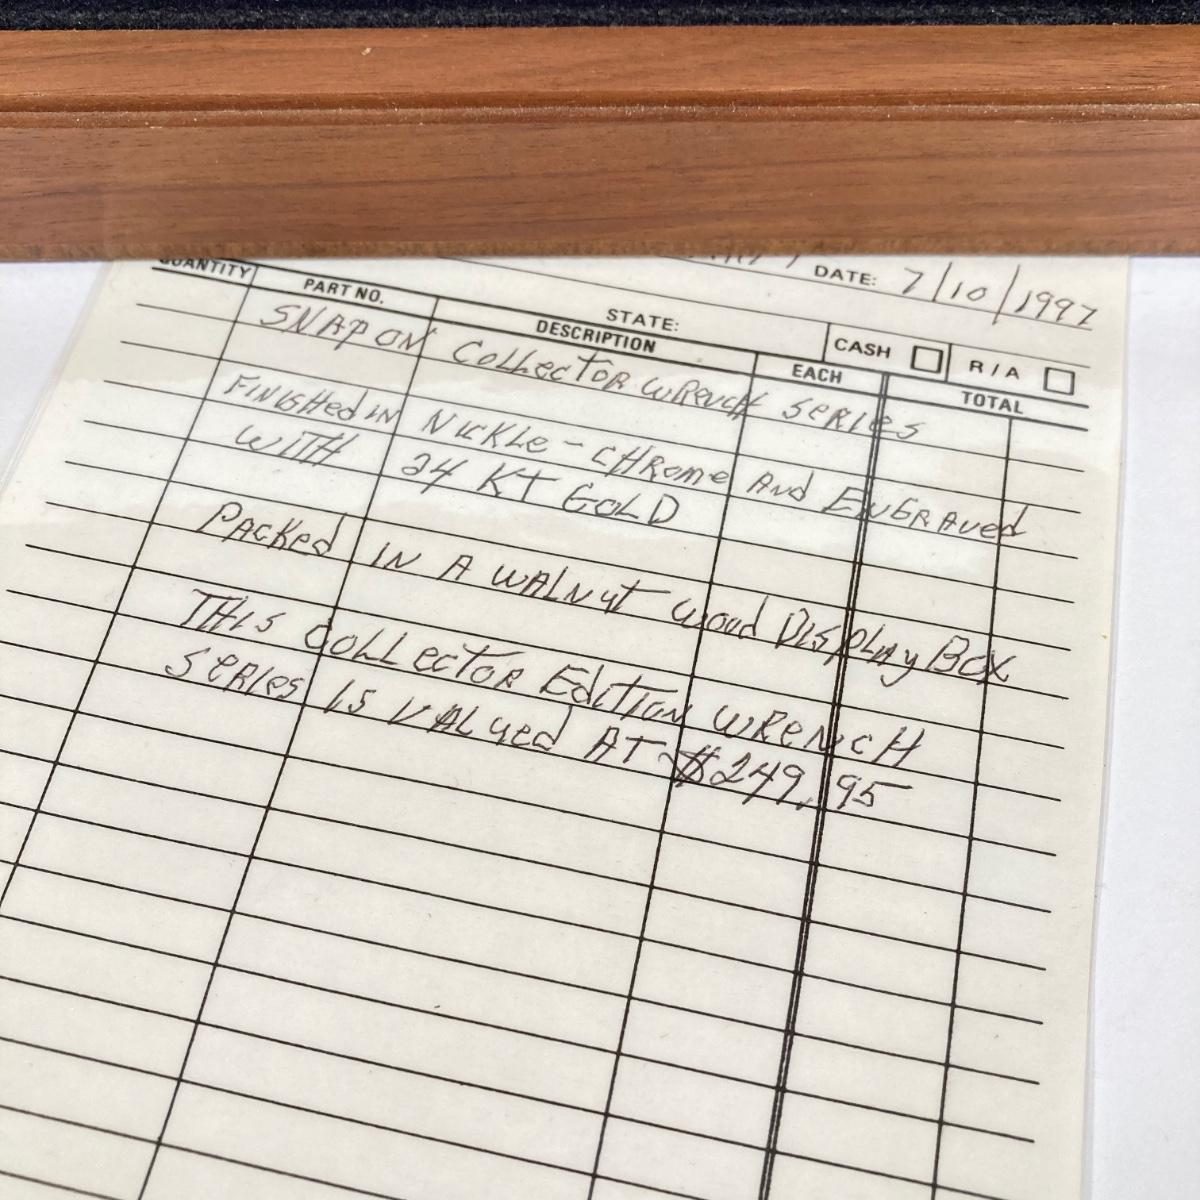 DATE: 7/10/1997
QUANTITY PART NO. STATE: CASH R/A
DESCRIPTION EACH TOTAL
SNAP ON COLLECTOR WRENCH SERIES
FINISHED IN NICKLE - CHROME AND ENGRAVED
WITH 24 KT GOLD
PACKED IN A WALNUT WOOD DISPLAY BOX
THIS COLLECTOR EDITION WRENCH
SERIES IS VALUED AT $249.95